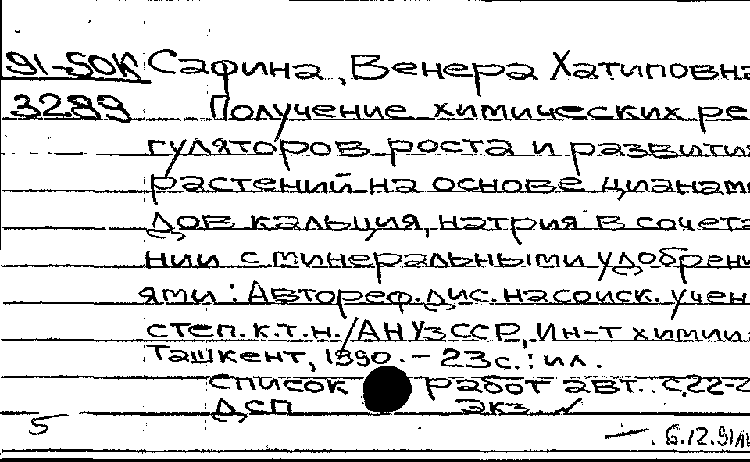 91-50К Сафина, Венера Хатиповна
3289 Получение химических ре
гуляторов роста и развития
растений на основе цианами
дов кальция, натрия в сочета
нии с минеральными удобрени
ями: Автореф. дис. на соиск. учен
степ. к.т.н. / АН УзССР, Ин-т химии
Ташкент, 1990. - 23 с. : ил.
Список работ авт.: с. 22-2
ДСП экз. ✓
5 6.12.91